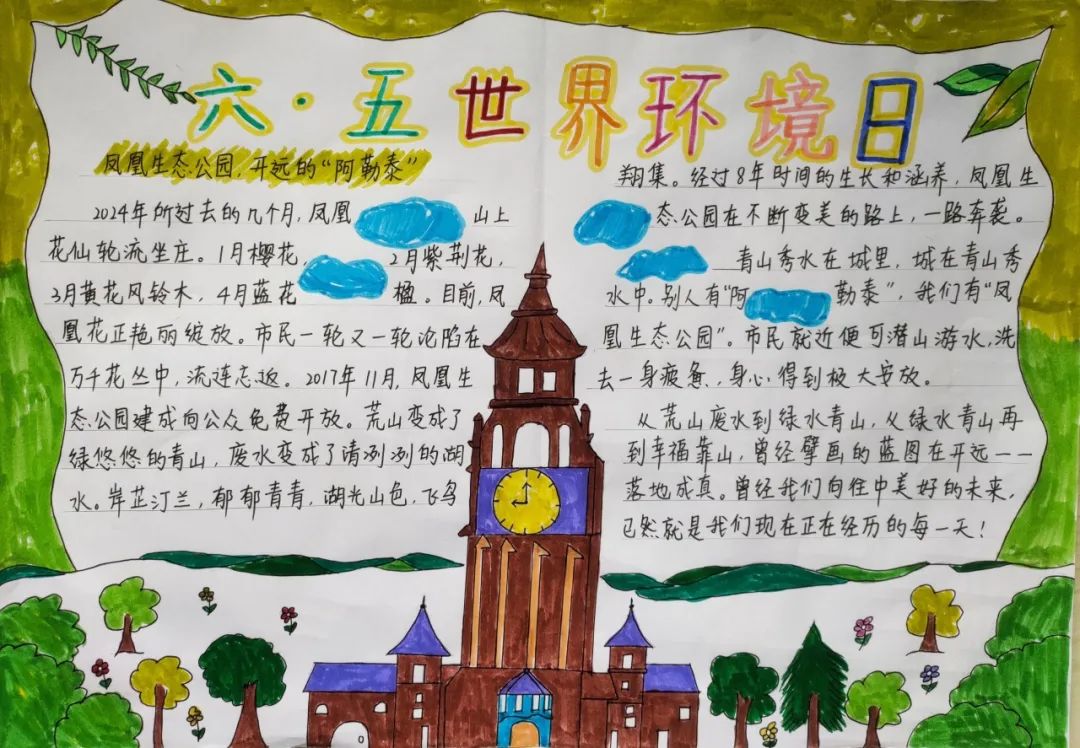 六·五世界环境日
凤凰生态公园,开远的“阿勒泰”
2024年所过去的几个月,凤凰 山上
花仙轮流坐庄。1月樱花, 2月紫荆花,
3月黄花风铃木,4月蓝花 楹。目前,凤
凰花正艳丽绽放。市民一轮又一轮沦陷在
万千花丛中,流连忘返。2017年11月,凤凰生
态公园建成向公众免费开放。荒山变成了
绿悠悠的青山,废水变成了清冽冽的湖
水。岸芷汀兰,郁郁青青,湖光山色,飞鸟
翔集。经过8年时间的生长和涵养,凤凰生
态公园在不断变美的路上,一路奔袭。
青山秀水在城里,城在青山秀
水中。别人有“阿 勒泰”,我们有“凤
凰生态公园”。市民就近便可潜山游水,洗
去一身疲惫,身心得到极大安放。
从荒山废水到绿水青山,从绿水青山再
到幸福靠山,曾经擘画的蓝图在开远一一
落地成真。曾经我们向往中美好的未来,
已然就是我们现在正在经历的每一天!